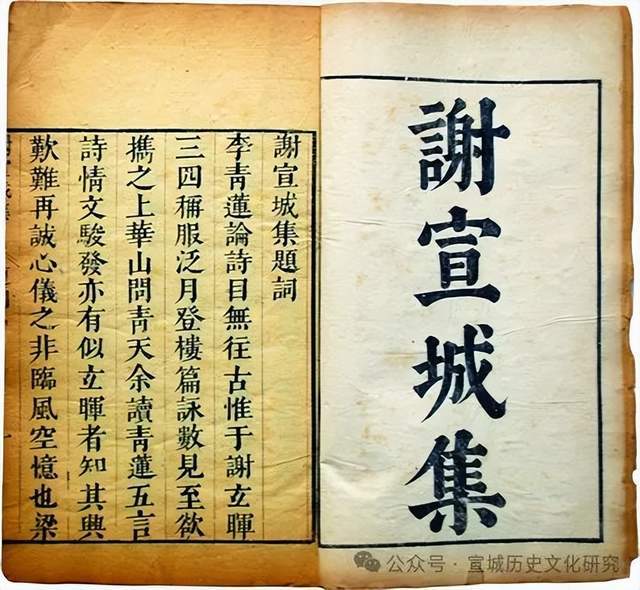 謝宣城集
謝宣城集題詞
李靑蓮論詩目無往古惟于謝玄暉
三四稱服泛月登樓篇詠數見至欲
攜之上華山問靑天余讀靑蓮五言
詩情文駿發亦有似玄暉者知其興
歎難再誠心儀之非臨風空憶也梁
公众号·宣城历史文化研究